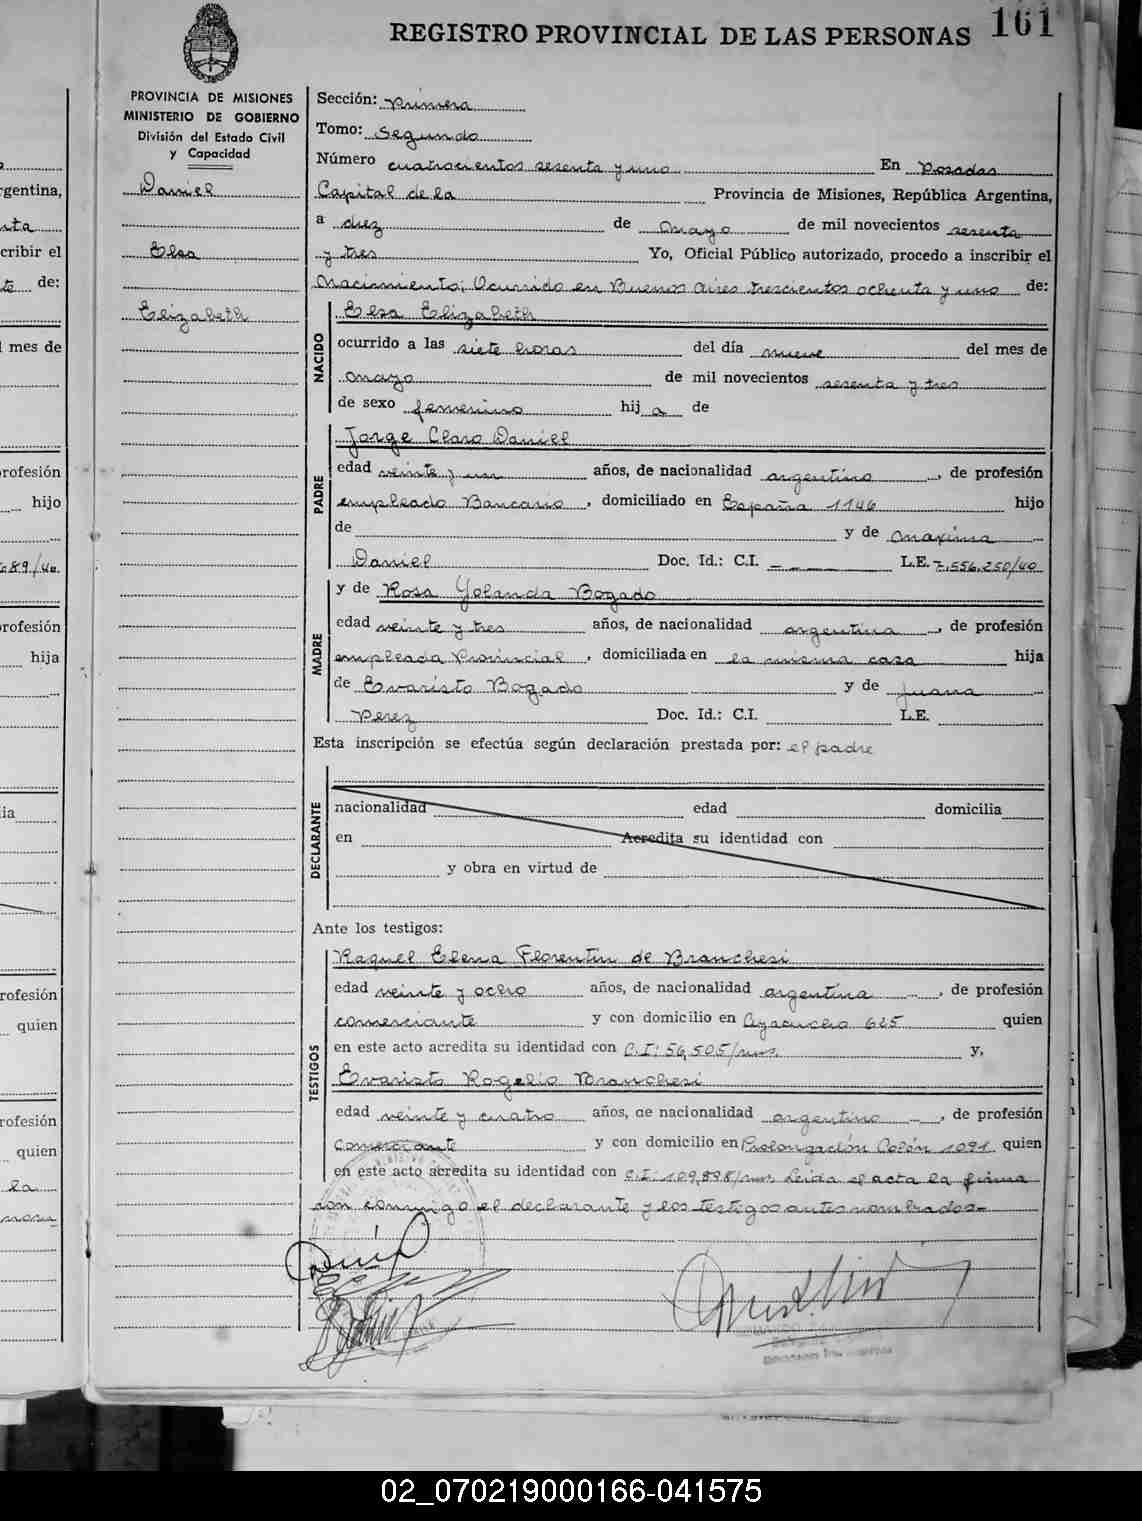 REGISTRO PROVINCIAL DE LAS PERSONAS 161
PROVINCIA DE MISIONES
MINISTERIO DE GOBIERNO
División del Estado Civil
y Capacidad
Daniel
Elsa
Elizabeth
Sección: Primera
Tomo: Segundo
Número cuatrocientos sesenta y uno En Posadas
Capital de la Provincia de Misiones, República Argentina,
a diez de mayo de mil novecientos sesenta
y tres Yo, Oficial Público autorizado, procedo a inscribir el
Nacimiento; Ocurrido en Buenos Aires trescientos ochenta y uno de:
NACIDO
Elsa Elizabeth
ocurrido a las siete horas del día nueve del mes de
mayo de mil novecientos sesenta y tres
de sexo femenino hija de
PADRE
Jorge Claro Daniel
edad veinte y un años, de nacionalidad argentino, de profesión
empleado Bancario, domiciliado en España 1146 hijo
de y de Maxima
Daniel Doc. Id.: C.I. - - - L.E. 7.556.250/40
MADRE
y de Rosa Yolanda Bogado
edad veinte y tres años, de nacionalidad argentina, de profesión
empleada Provincial, domiciliada en la misma casa hija
de Evaristo Bogado y de Juana
Perez Doc. Id.: C.I. L.E.
Esta inscripción se efectúa según declaración prestada por: el padre
DECLARANTE
nacionalidad edad domicilia
en Acredita su identidad con
y obra en virtud de
Ante los testigos:
TESTIGOS
Raquel Elena Florentin de Branchesi
edad veinte y ocho años, de nacionalidad argentina, de profesión
comerciante y con domicilio en Ayacucho 625 quien
en este acto acredita su identidad con C.I: 56,505/mns. y,
Evaristo Rogelio Branchesi
edad veinte y cuatro años, de nacionalidad argentino, de profesión
comerciante y con domicilio en Prolongación Colón 1091 quien
en este acto acredita su identidad con C.I: 109,898/mns. Leida el acta la firma
con conmigo el declarante y los testigos antes nombrados-
rgentina,
cribir el
de:
l mes de
rofesión
hijo
rofesión
hija
rofesión
quien
rofesión
quien
la
02_070219000166-041575